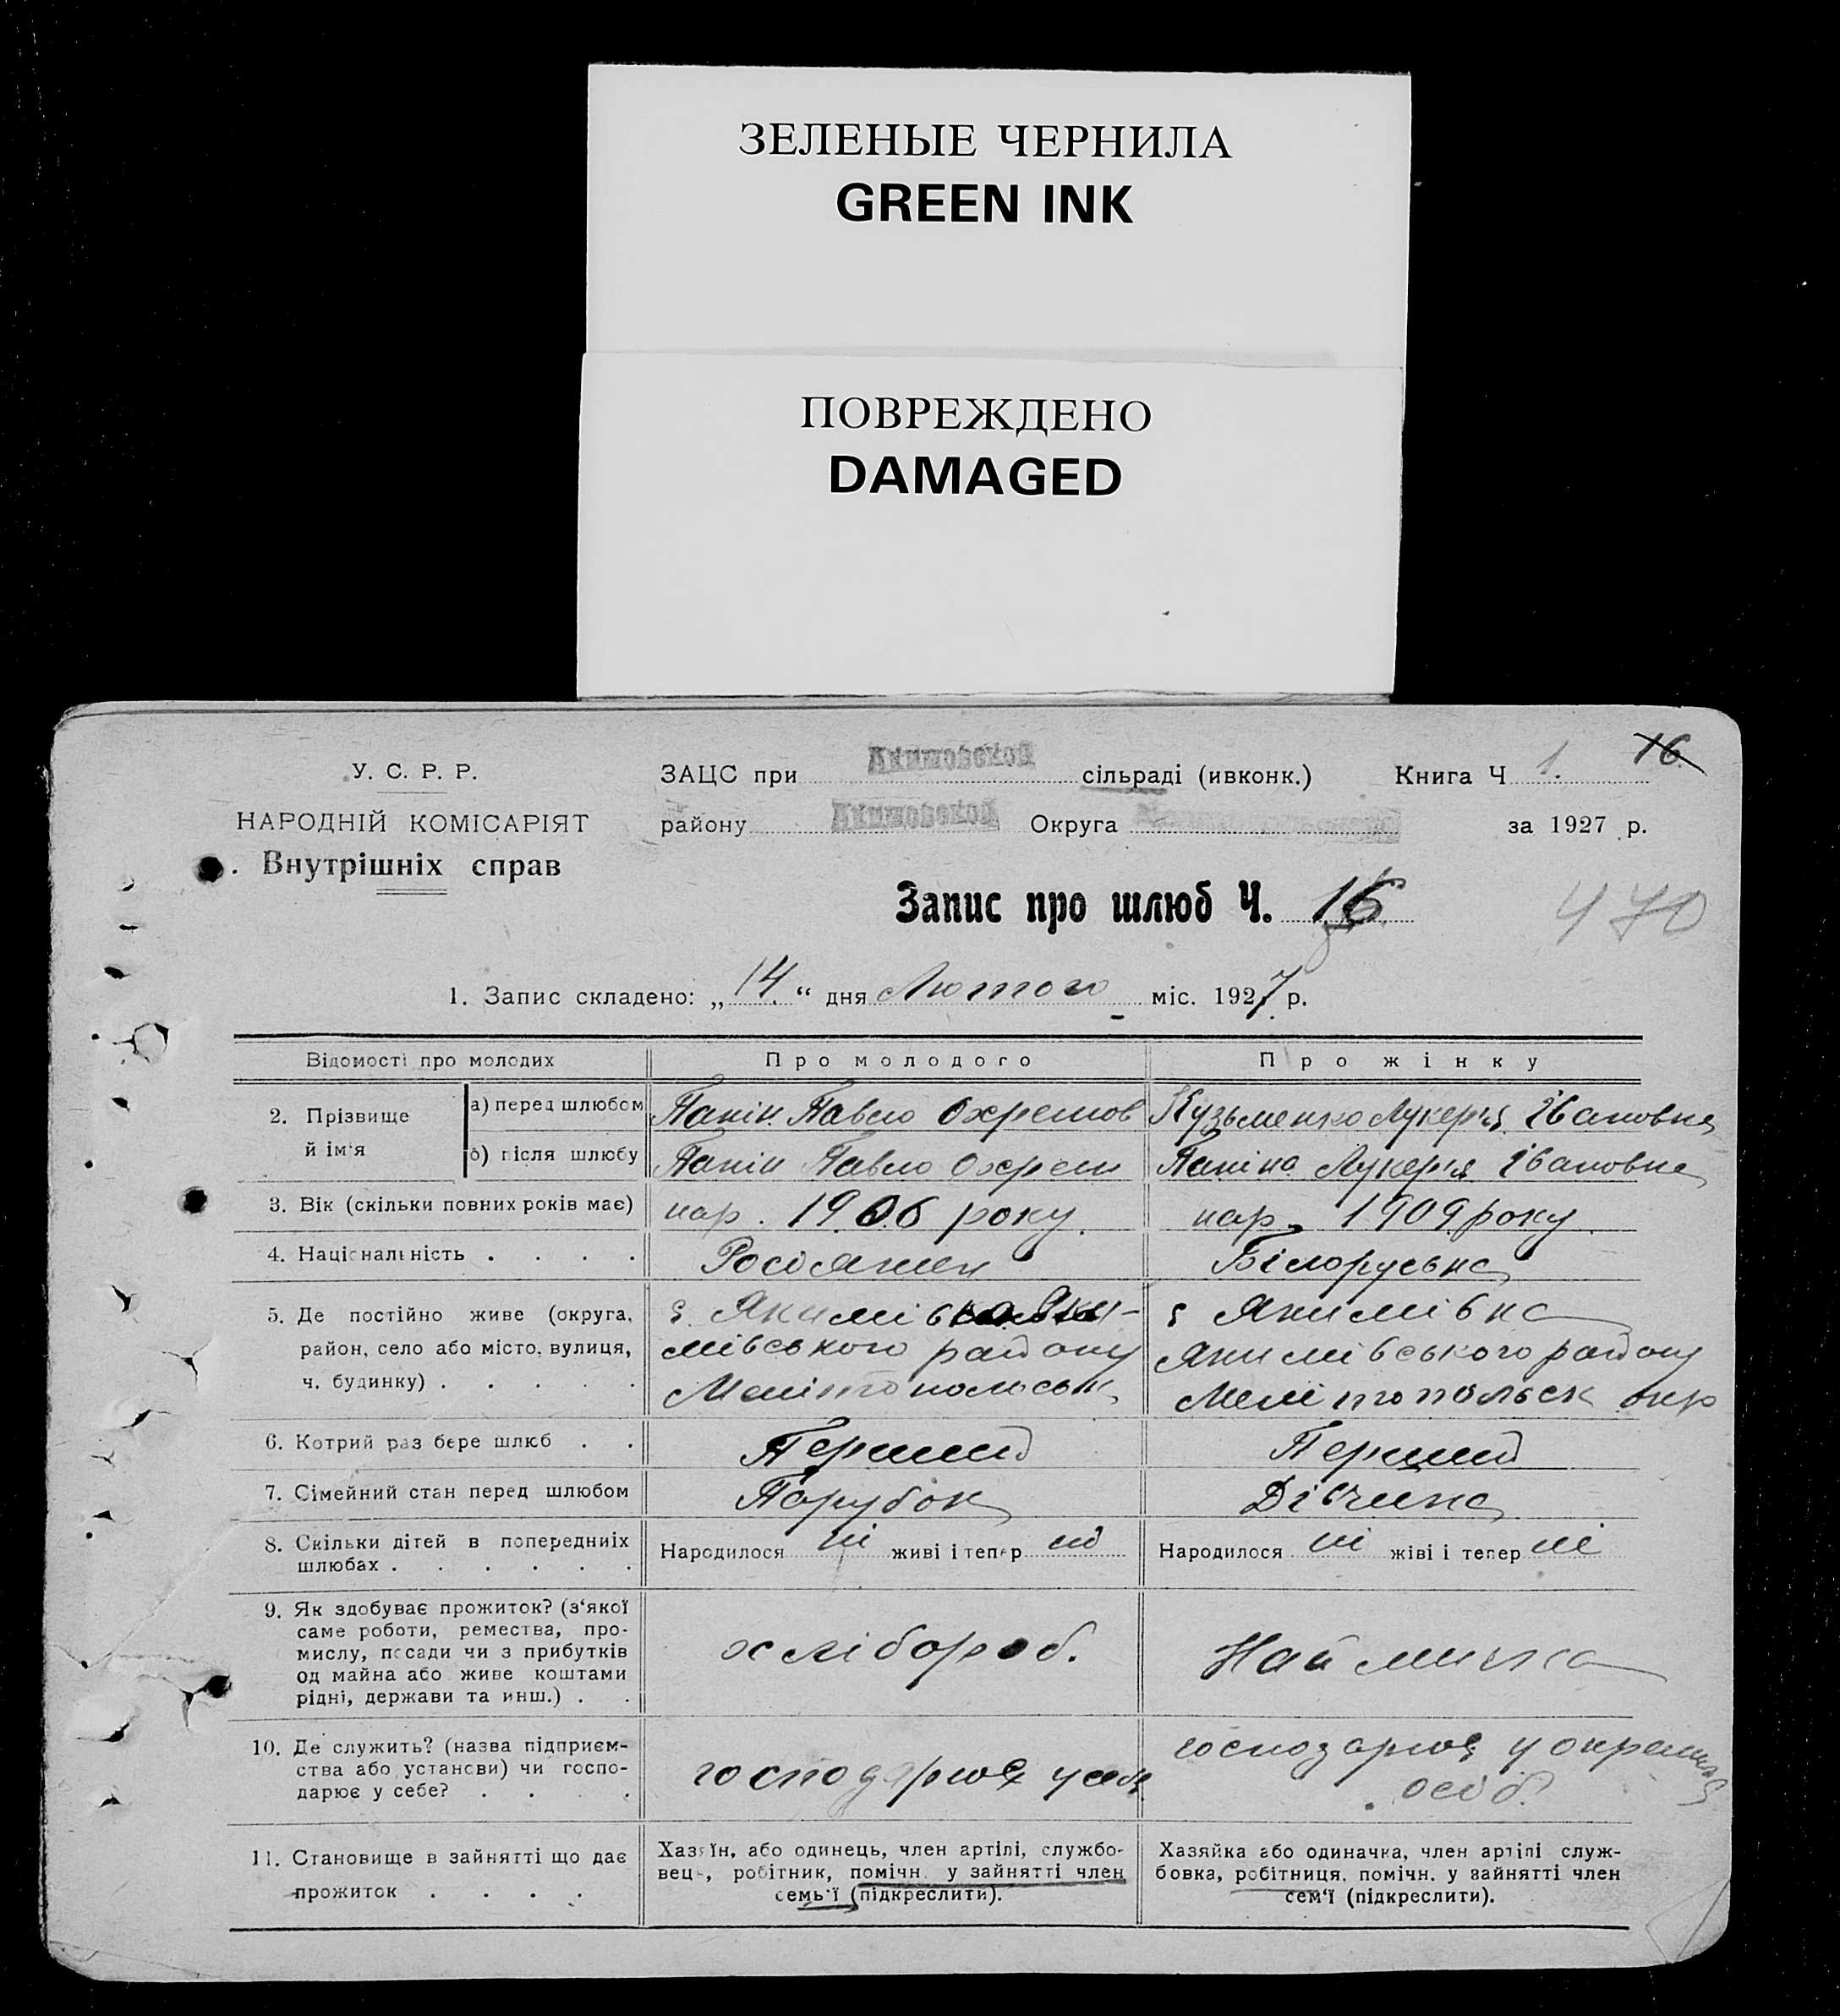 ЗЕЛЕНЫЕ ЧЕРНИЛА
GREEN INK
ПОВРЕЖДЕНО
DAMAGED
16
У. С. Р. Р.
ЗАЦС при Акимовской сільраді (ивконк.) Книга Ч 1.
НАРОДНІЙ КОМІСАРІЯТ
району Акимовской Округа за 1927 р.
Внутрішніх справ
Запис про шлюб Ч. 16
470
1. Запис складено: „14“ дня Лютого міс. 1927 р.
Відомості про молодих Про молодого Про жінку
2. Прізвище й ім'я
а) перед шлюбом Панін Павло Охремов Кузьменко Лукерія Івановна
б) після шлюбу Панін Павло Охрем Паніна Лукерія Івановна
3. Вік (скільки повних років має) нар. 1906 року. нар. 1909 року.
4. Національність . . . . Росіянин Білоруська
5. Де постійно живе (округа, с. Якимівка Яки- с Якимівка
район, село або місто, вулиця, мівського району Якимівського району
ч. будинку) . . . . . Мелітопольськ Мелітопольск окр
6. Котрий раз бере шлюб . . Перший Перший
7. Сімейний стан перед шлюбом Парубок Дівчина
8. Скільки дітей в попередніх Народилося ні живі і тепер ні Народилося ні жіві і тепер ні
шлюбах . . . . . .
9. Як здобуває прожиток? (з'якої
саме роботи, ремества, про-
мислу, посади чи з прибутків хлібороб. Наймичка
од майна або живе коштами
рідні, держави та инш.) . .
10. Де служить? (назва підприєм-
ства або установи) чи госпо- господарює у себе господарює у окремих
дарює у себе? . . . . особ.
11. Становище в зайнятті що дає Хазяїн, або одинець, член артілі, службо- Хазяйка або одиначка, член артілі служ-
прожиток . . . . вець, робітник, помічн. у зайнятті член бовка, робітниця, помічн. у зайнятті член
семь'ї (підкреслити). сем'ї (підкреслити).